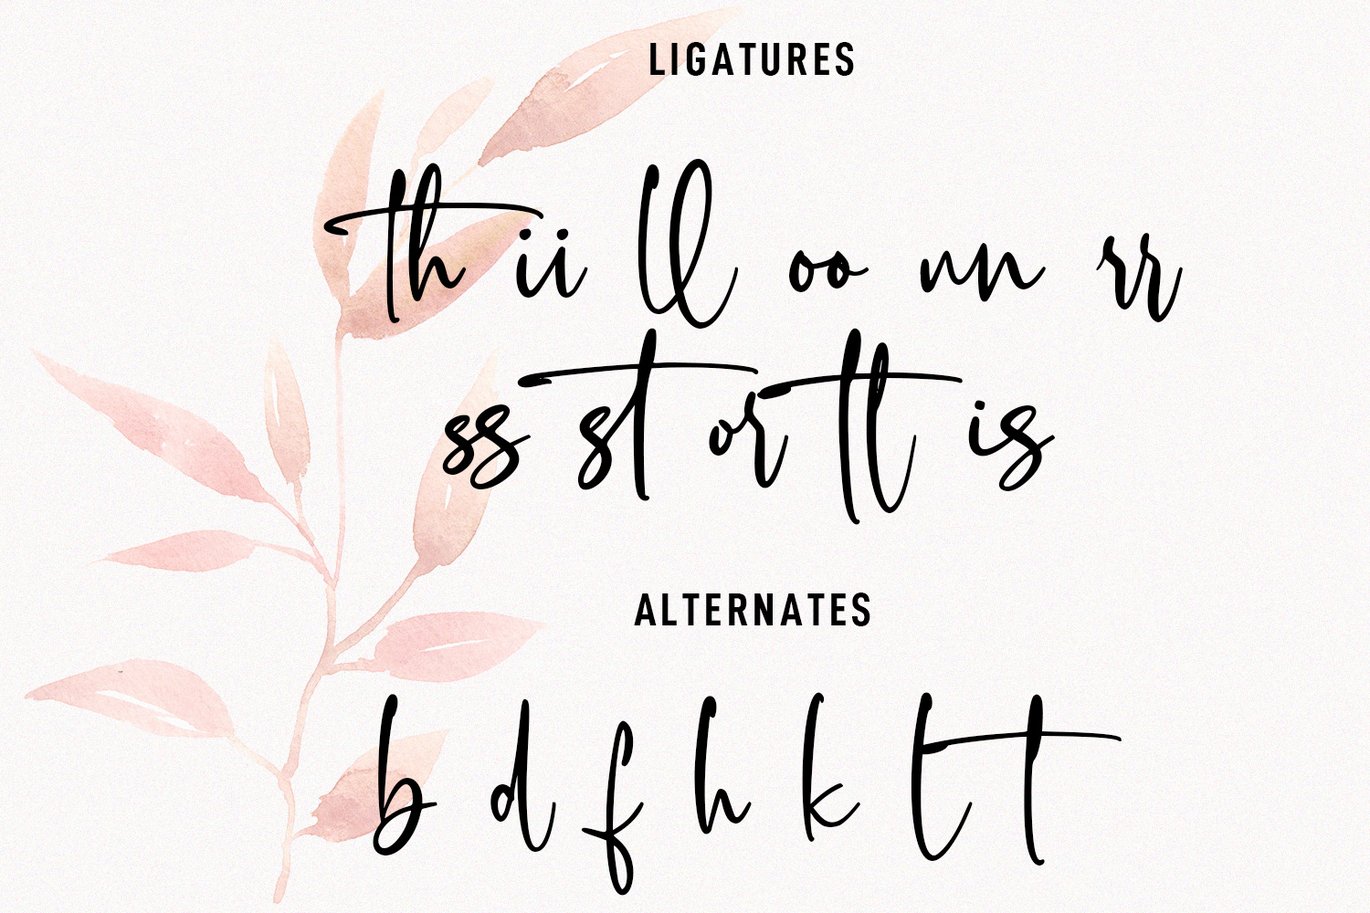 LIGATURES
th ii ll oo nn rr
ss st or tt is
ALTERNATES
b d f h k t t